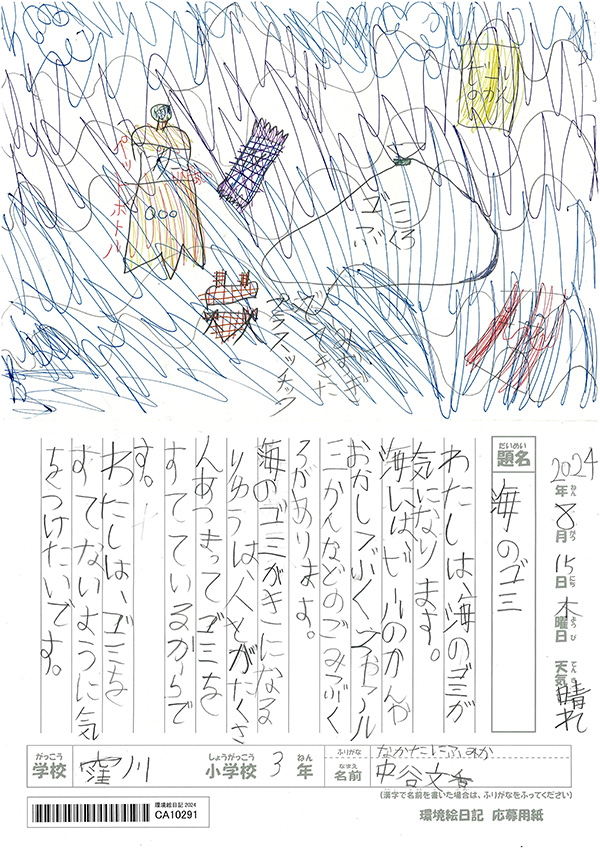 ビール
のかん
ペットボトル
ゴミ
ぶくろ
みずぎ
プラスッチック
2024年ねん8月がつ15日にち木曜日ようび天気てんき晴れ
だいめい
題名
海のゴミ
わたしは、海のゴミが
気になります。
海には、ビールのかんや
おかしぶくろ、
三かんなどのごみぶく
ろがあります。
海のゴミがきになる
りゆうは、人とがたくさ
んあつまってゴミを
すてているからで
す。
わたしは、ゴミを
すてないように気
をつけたいです。
がっこう
学校
窪川
しょうがっこう
小学校
3
ねん
年
ふりがな
なかたにふみか
なまえ
名前
中谷文香
(漢字で名前を書いた場合は、ふりがなをふってください)
環境絵日記 2024
CA10291
環境絵日記 応募用紙